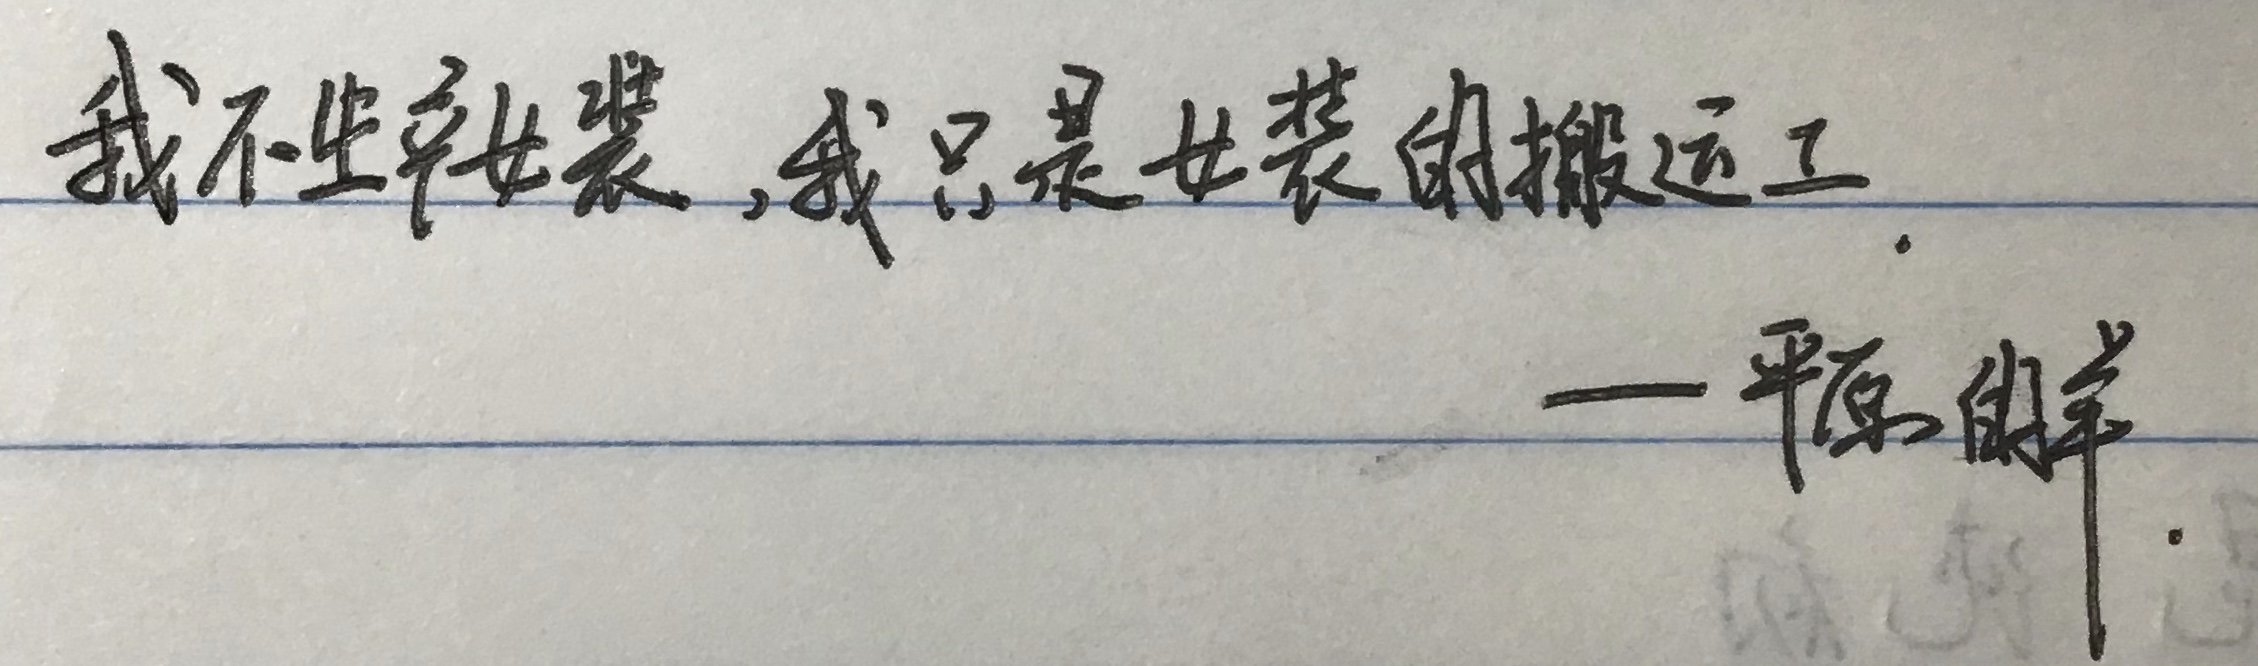 我不生产女装,我只是女装的搬运工.
—平原的羊.